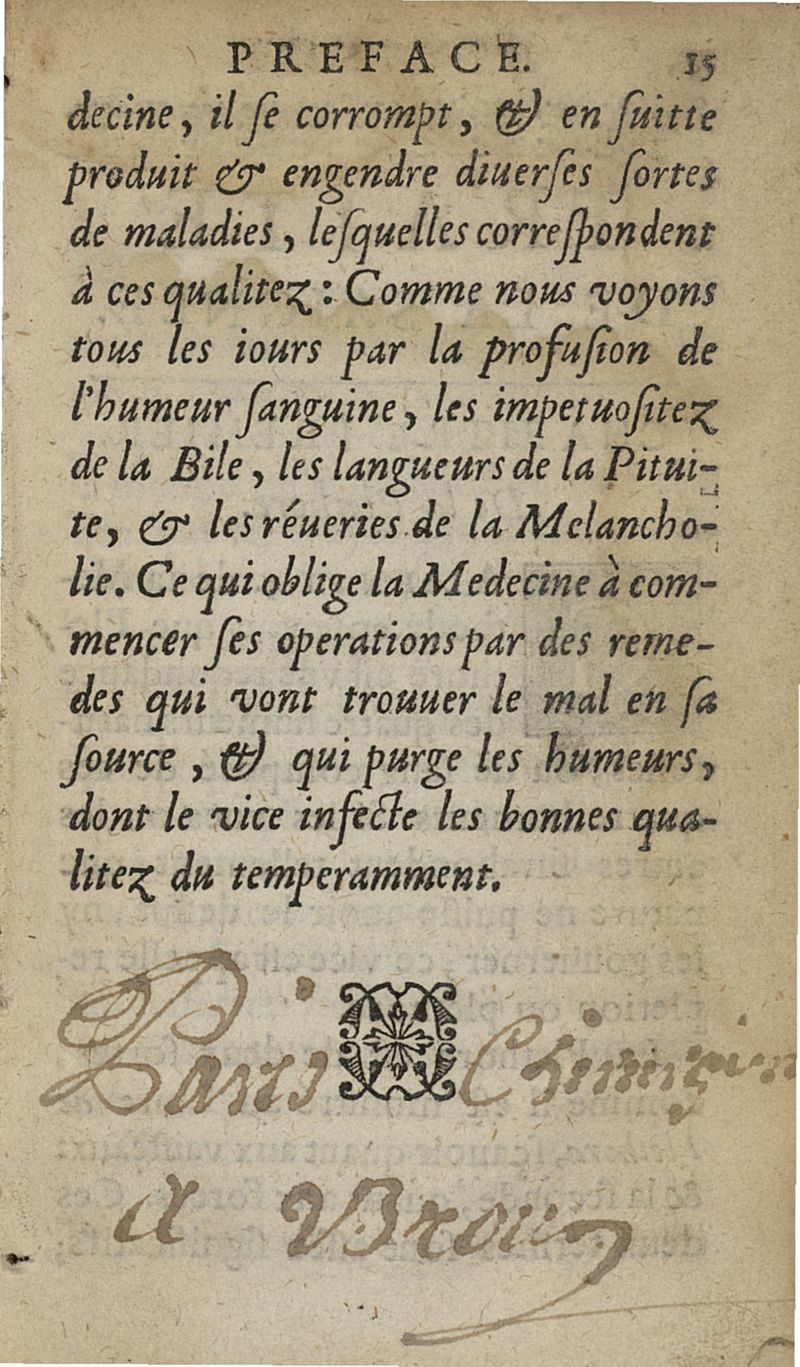 PREFACE. 15
decine, il ſe corrompt, & en ſuitte
produit & engendre diuerſes ſortes
de maladies, leſquelles correſpondent
à ces qualitez : Comme nous voyons
tous les iours par la profuſion de
l'humeur ſanguine, les impetuoſitez
de la Bile, les langueurs de la Pitui-
te, & les réueries de la Melancho-
lie. Ce qui oblige la Medecine à com-
mencer ſes operations par des reme-
des qui vont trouuer le mal en ſa
ſource, & qui purge les humeurs,
dont le vice infecte les bonnes qua-
litez du temperamment.
Paris Chirurgien
a Brou